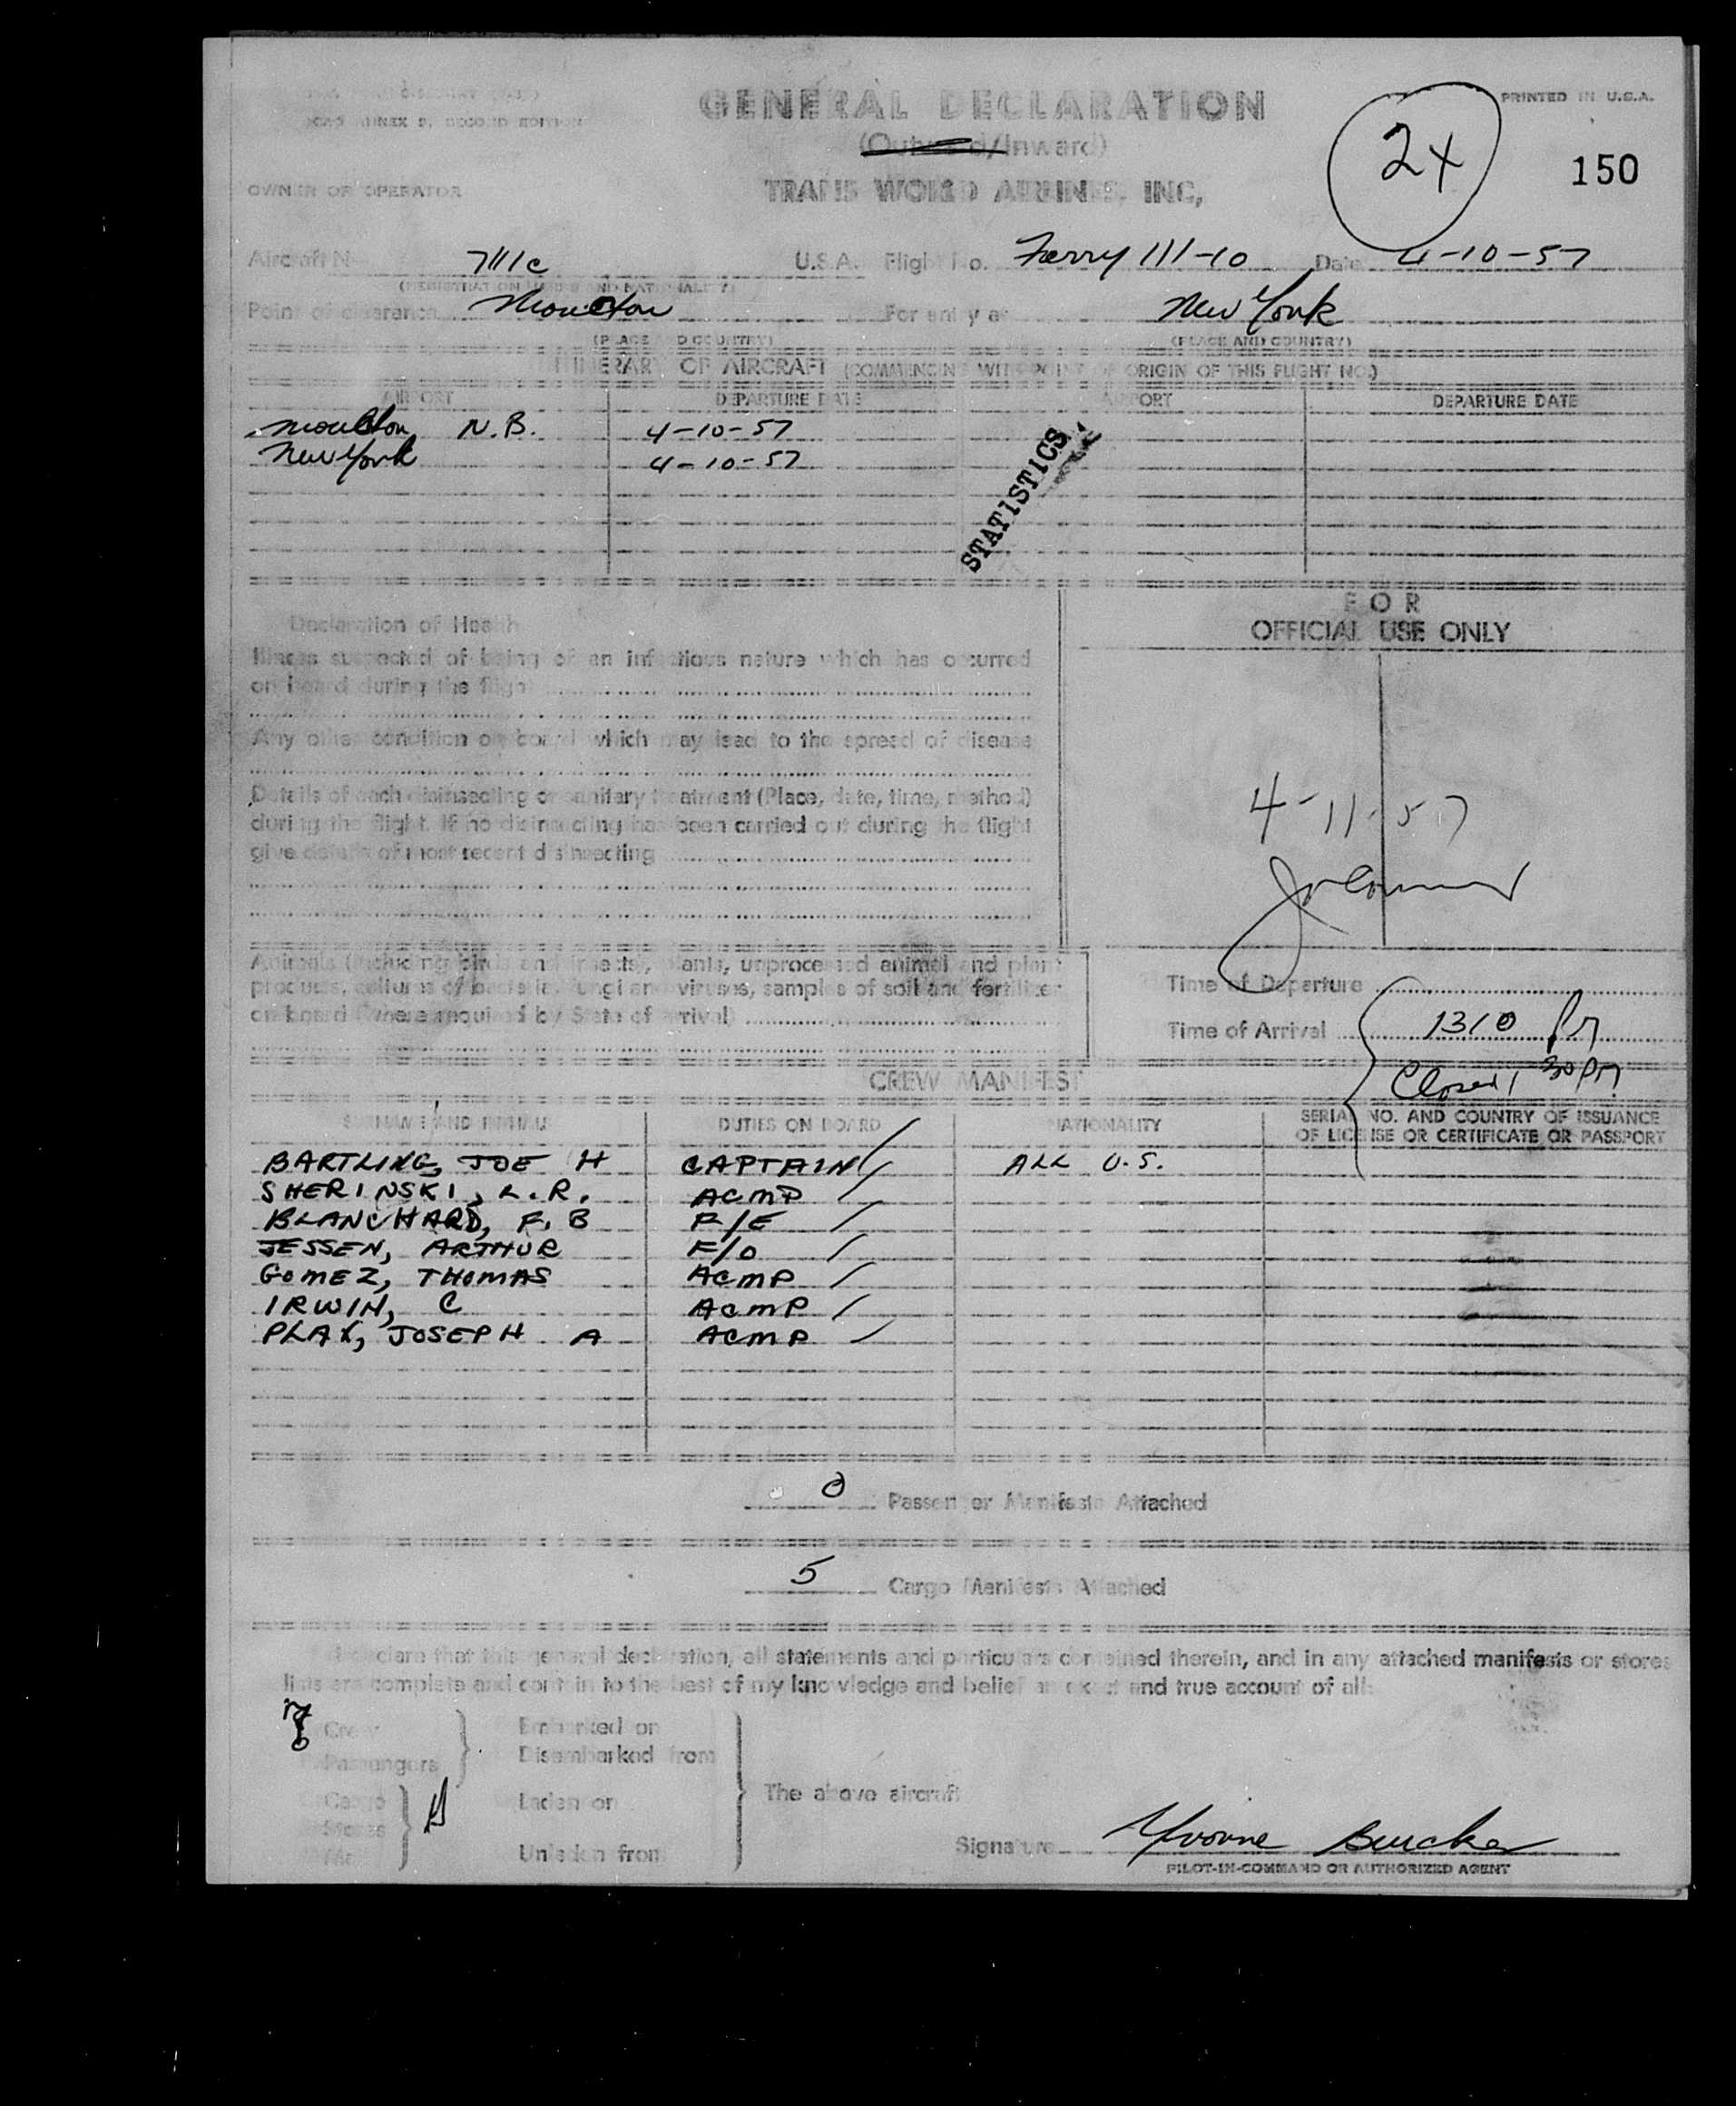 ICAO ANNEX 9, SECOND EDITION
GENERAL DECLARATION
PRINTED IN U.S.A.
(Outward/Inward)
24
150
OWNER OR OPERATOR
TRANS WORLD AIRLINES, INC,
Aircraft N 7111c U.S.A. Flight No. Ferry 111-10 Date 4-10-57
(REGISTRATION MARKS AND NATIONALITY)
Point of clearance Moncton For entry at New York
(PLACE AND COUNTRY) (PLACE AND COUNTRY)
ITINERARY OF AIRCRAFT (COMMENCING WITH POINT OF ORIGIN OF THIS FLIGHT NO.)
AIRPORT DEPARTURE DATE AIRPORT DEPARTURE DATE
Moncton N.B. 4-10-57
New York 4-10-57
STATISTICS
FOR
OFFICIAL USE ONLY
Declaration of Health
Illness suspected of being of an infectious nature which has occurred
on board during the flight
Any other condition on board which may lead to the spread of disease
Details of each disinsecting or sanitary treatment (Place, date, time, method)
during the flight. If no disinsecting has been carried out during the flight
give details of most recent disinsecting
4-11-57
Animals (including birds and insects), plants, unprocessed animal and plant
products, cultures of bacteria, fungi and viruses, samples of soil and fertilizer
on board (where required by State of arrival)
Time of Departure
Time of Arrival 1310 PM
Closed 1 30 PM
CREW MANIFEST
SURNAME AND INITIALS DUTIES ON BOARD NATIONALITY SERIAL NO. AND COUNTRY OF ISSUANCE
OF LICENSE OR CERTIFICATE OR PASSPORT
BARTLING, JOE H CAPTAIN ALL U.S.
SHERINSKI, L.R. ACMP
BLANCHARD, F. B F/E
JESSEN, ARTHUR F/O
GOMEZ, THOMAS ACMP
IRWIN, C ACMP
PLAX, JOSEPH A ACMP
0 Passenger Manifests Attached
5 Cargo Manifests Attached
I declare that this general declaration, all statements and particulars contained therein, and in any attached manifests or stores
lists are complete and contain to the best of my knowledge and belief an exact and true account of all:
7 Crew
0 Passengers
Embarked on
Disembarked from
Cargo
Stores
Laden on
Unladen from
The above aircraft
Signature Yvonne Burcker
PILOT-IN-COMMAND OR AUTHORIZED AGENT